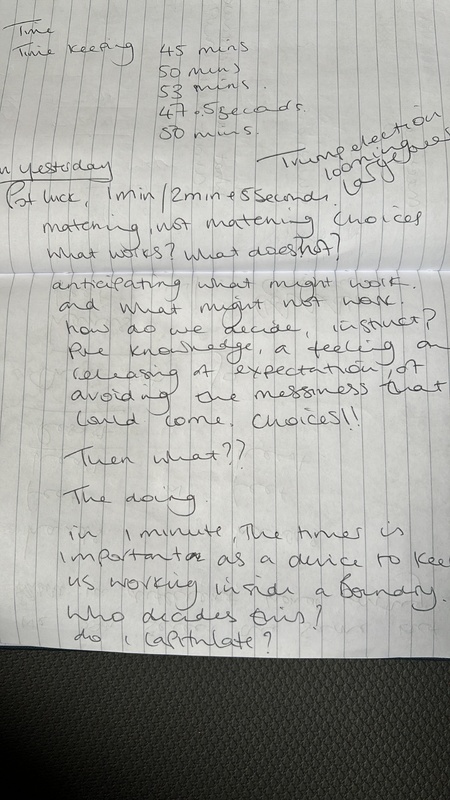 Time
Time keeping 45 mins
50 mins
53 mins.
47.5 seconds.
50 mins.
Trump election
looming
yesterday
Pot luck, 1min/2min + 5 seconds.
matching, not matching choices
what works? what does not?
anticipating what might work.
and what might not work.
how do we decide, instruct?
Pre knowledge, a feeling an
releasing of expectation, of
avoiding the messiness that
could come. Choices!!
Then what??
The doing.
in 1 minute, The times is
important as a device to kee
us working inside a Boundry.
Who decides this?
do i capitulate?